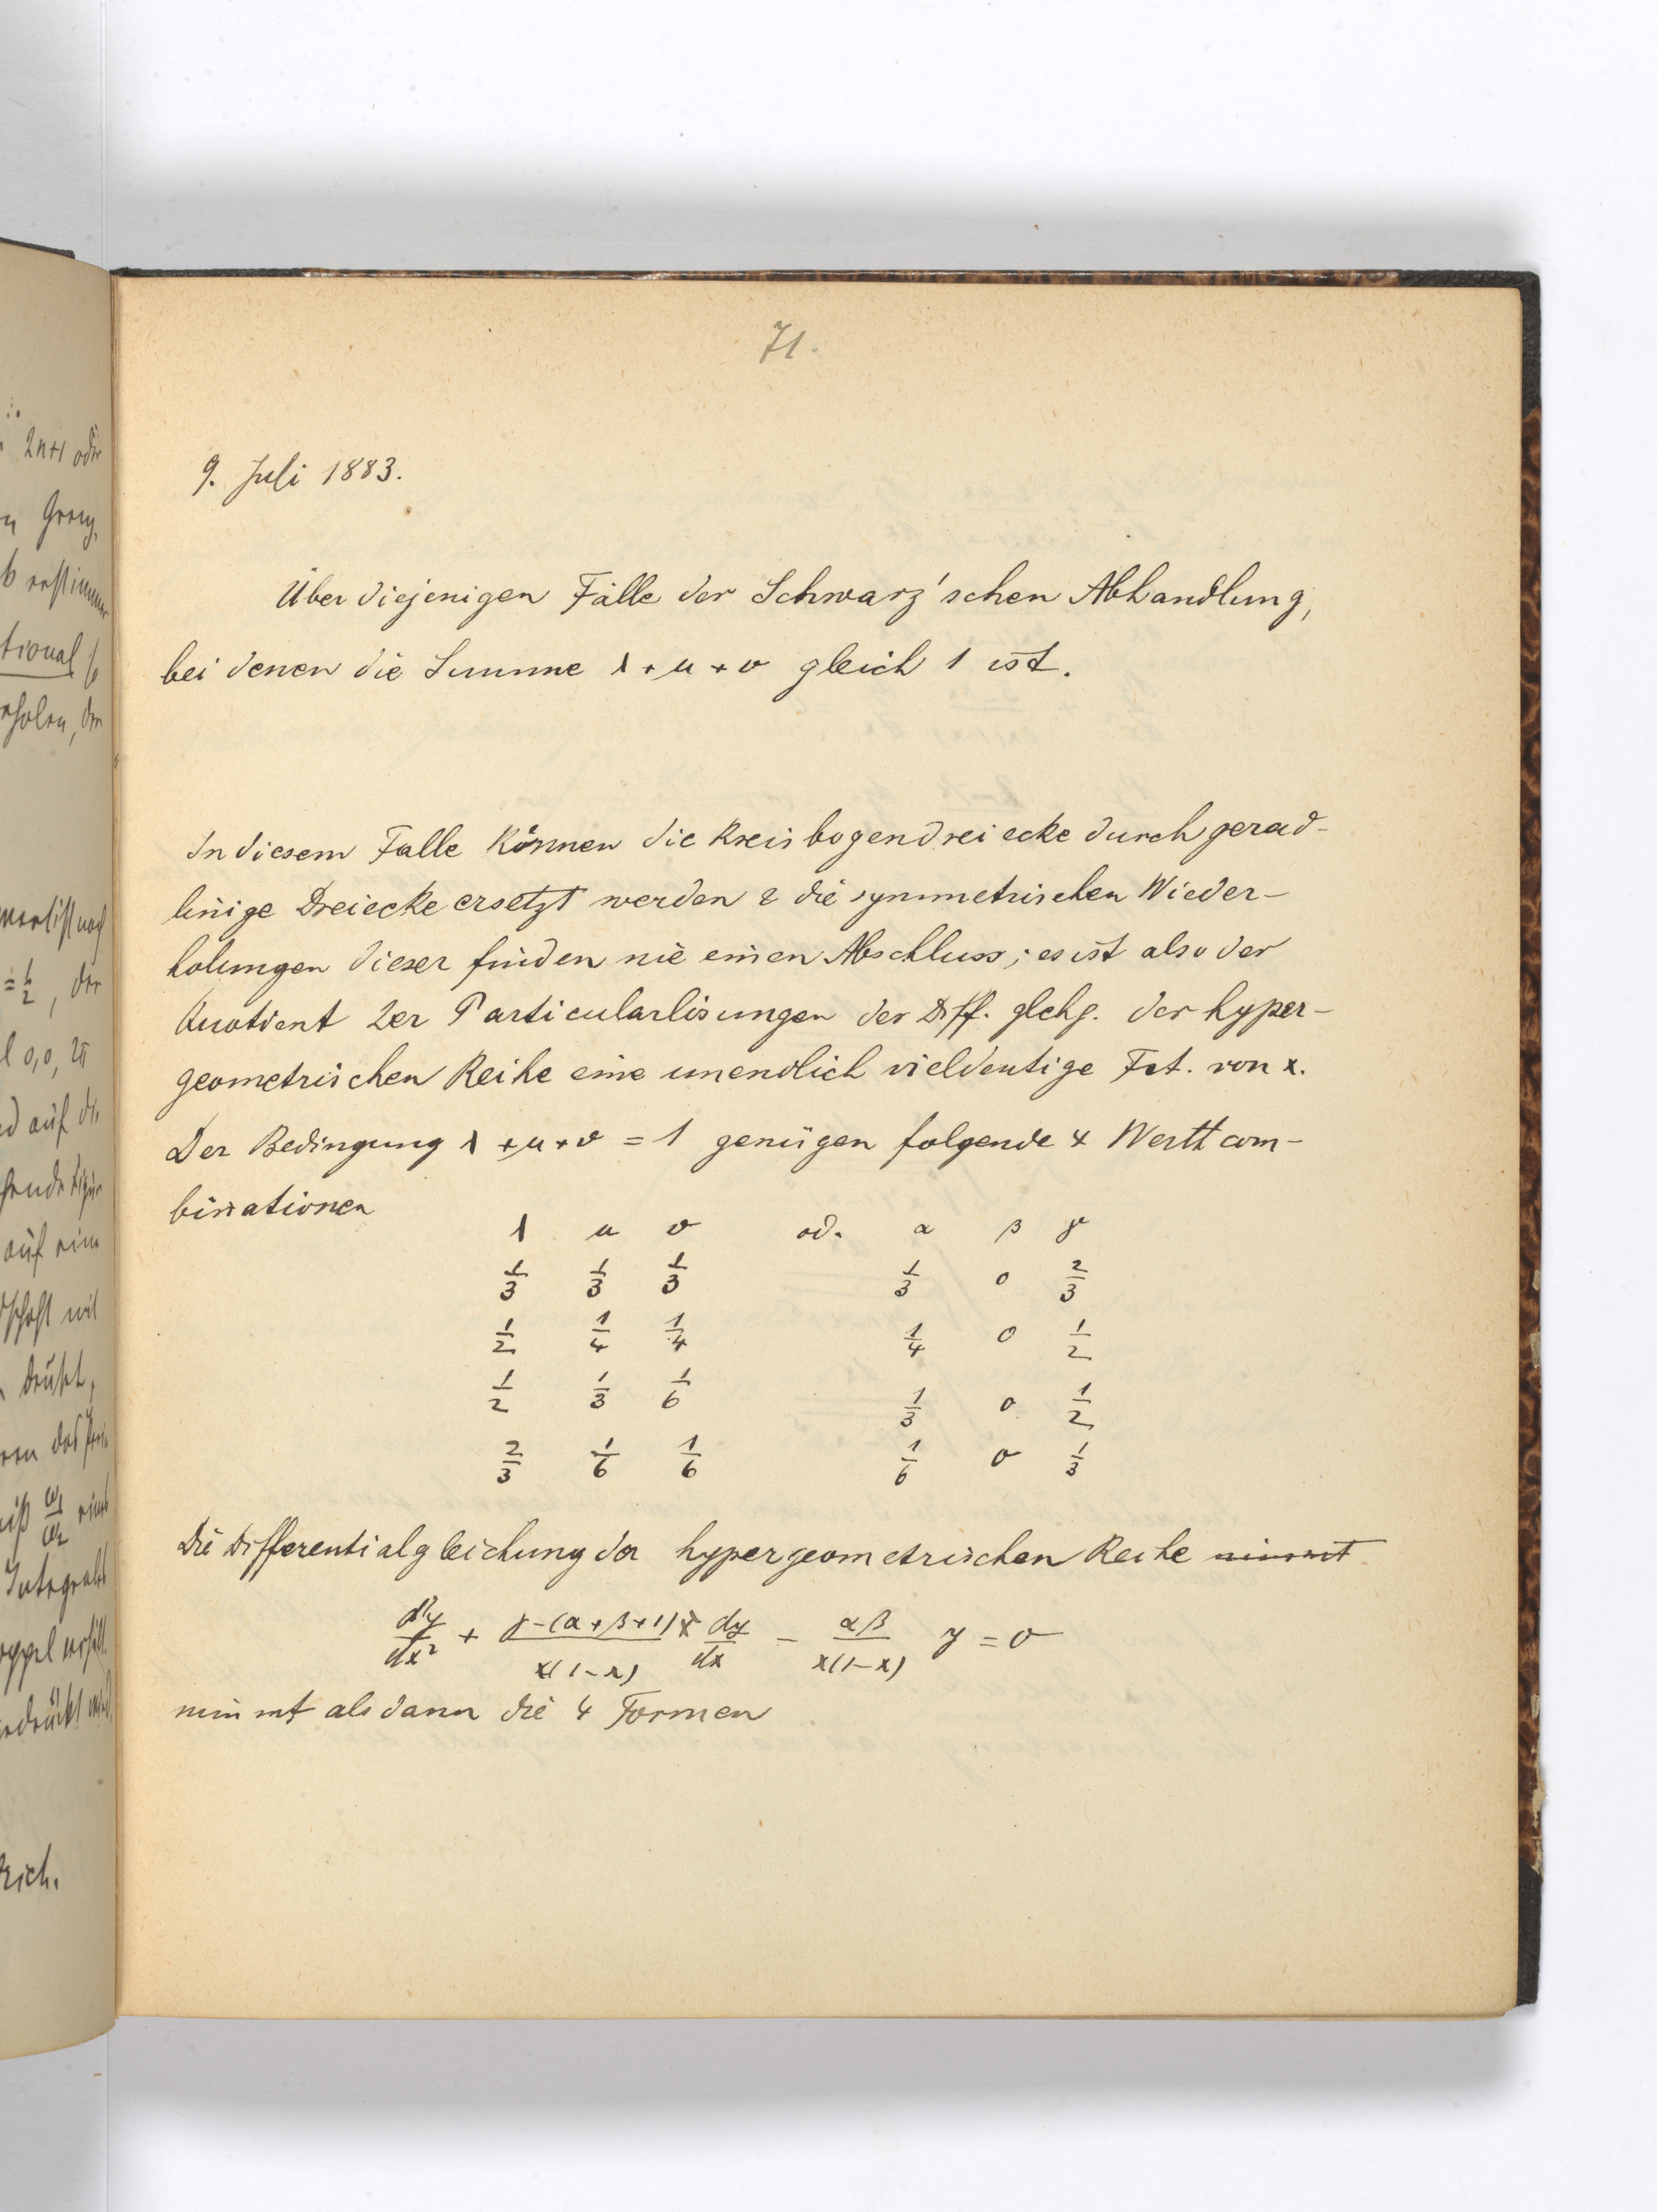 71.
9. Juli 1883.
Über diejenigen Fälle der Schwarz'schen Abhandlung,
bei denen die Summe λ + μ + ν gleich 1 ist.
In diesem Falle können die Kreisbogendreiecke durch gerad-
linige Dreiecke ersetzt werden & die symmetrischen Wieder-
holungen dieser finden nie einen Abschluss; es ist also der
Quotient 2er Particularlösungen der Diff. glchg. der hyper-
geometrischen Reihe eine unendlich vieldeutige Fct. von x.
Der Bedingung λ + μ + ν = 1 genügen folgende 4 Werthcom-
binationen
λ μ ν od. α β γ
1/3 1/3 1/3 1/3 0 2/3
1/2 1/4 1/4 1/4 0 1/2
1/2 1/3 1/6 1/3 0 1/2
2/3 1/6 1/6 1/6 0 1/3
Die Differentialgleichung der hypergeometrischen Reihe nimmt
d²y/dx² + γ-(α+β+1)x/x(1-x) dy/dx - αβ/x(1-x) y = 0
nimmt alsdann die 4 Formen
2n+1 oder
tional
auf die
auf eine
drückt,
Integrale